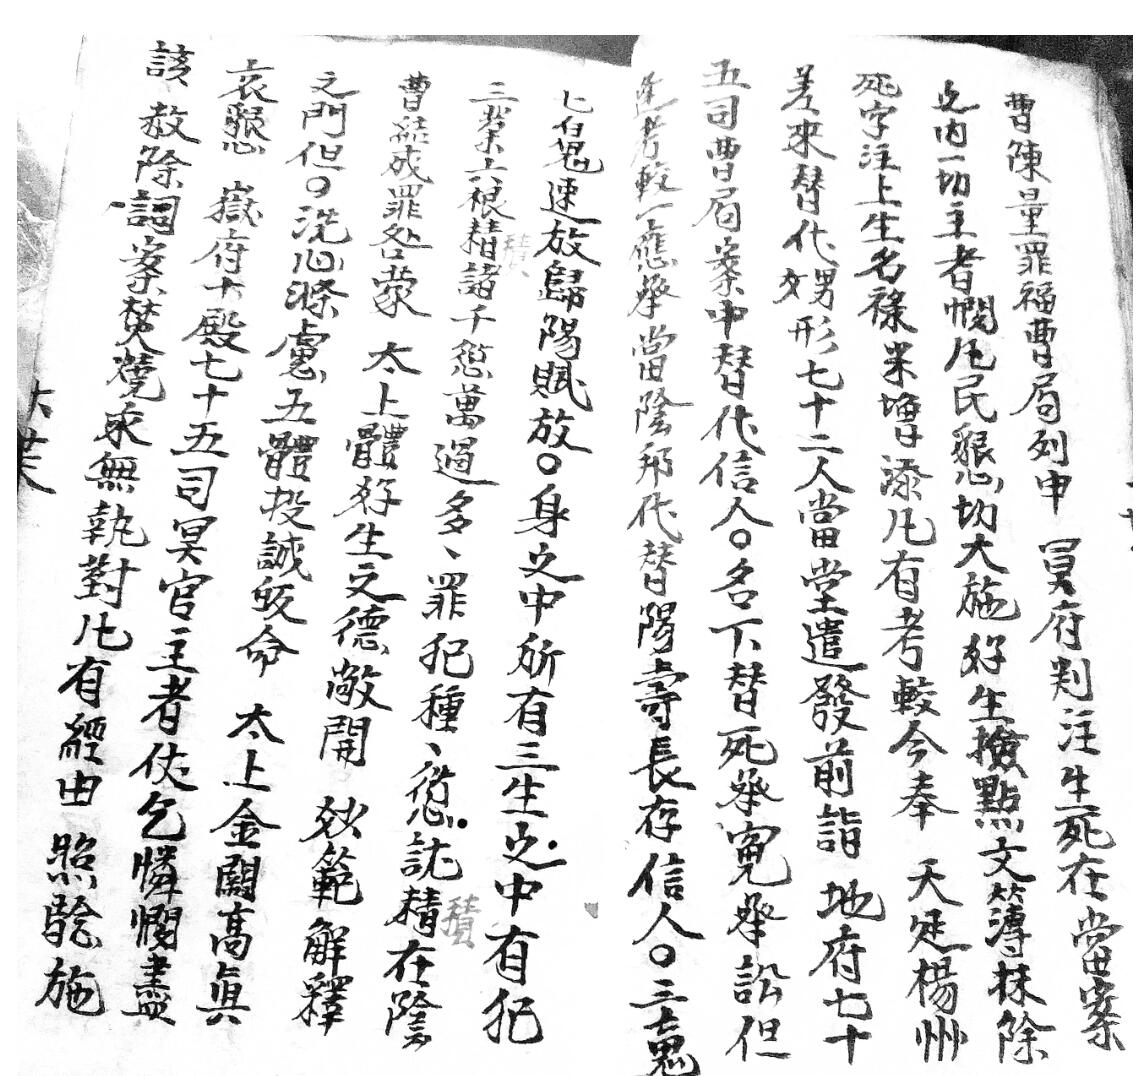 曹陳量罪福曹局列申 冥府判注生死在當案
之内一切主者憫凡民懇切大施好生撿點文簿抹除
死字注上生名祿米增添凡有考較今奉 天廷楊州
差來替代男形七十二人當堂遣發前詣 地府七十
五司曹局案中替代信人〇名下替死舉寃舉訟但
考較一應舉當陰邦代替陽壽長存信人〇三魂
七白鬼速放歸陽賦放〇身之中所有三生之中有犯
三業六根積諸千愆萬過多、罪犯種、愆訧積在陰
曹結成罪咎蒙 太上體好生之德敞開 玅範解釋
之門但〇洗心滌慮五體投誠皈命 太上金闕高眞
哀懇 嶽府十殿七十五司冥官主者伏乞憐憫盡
該 赦除詞案焚燒永無執對凡有經由 照驗施